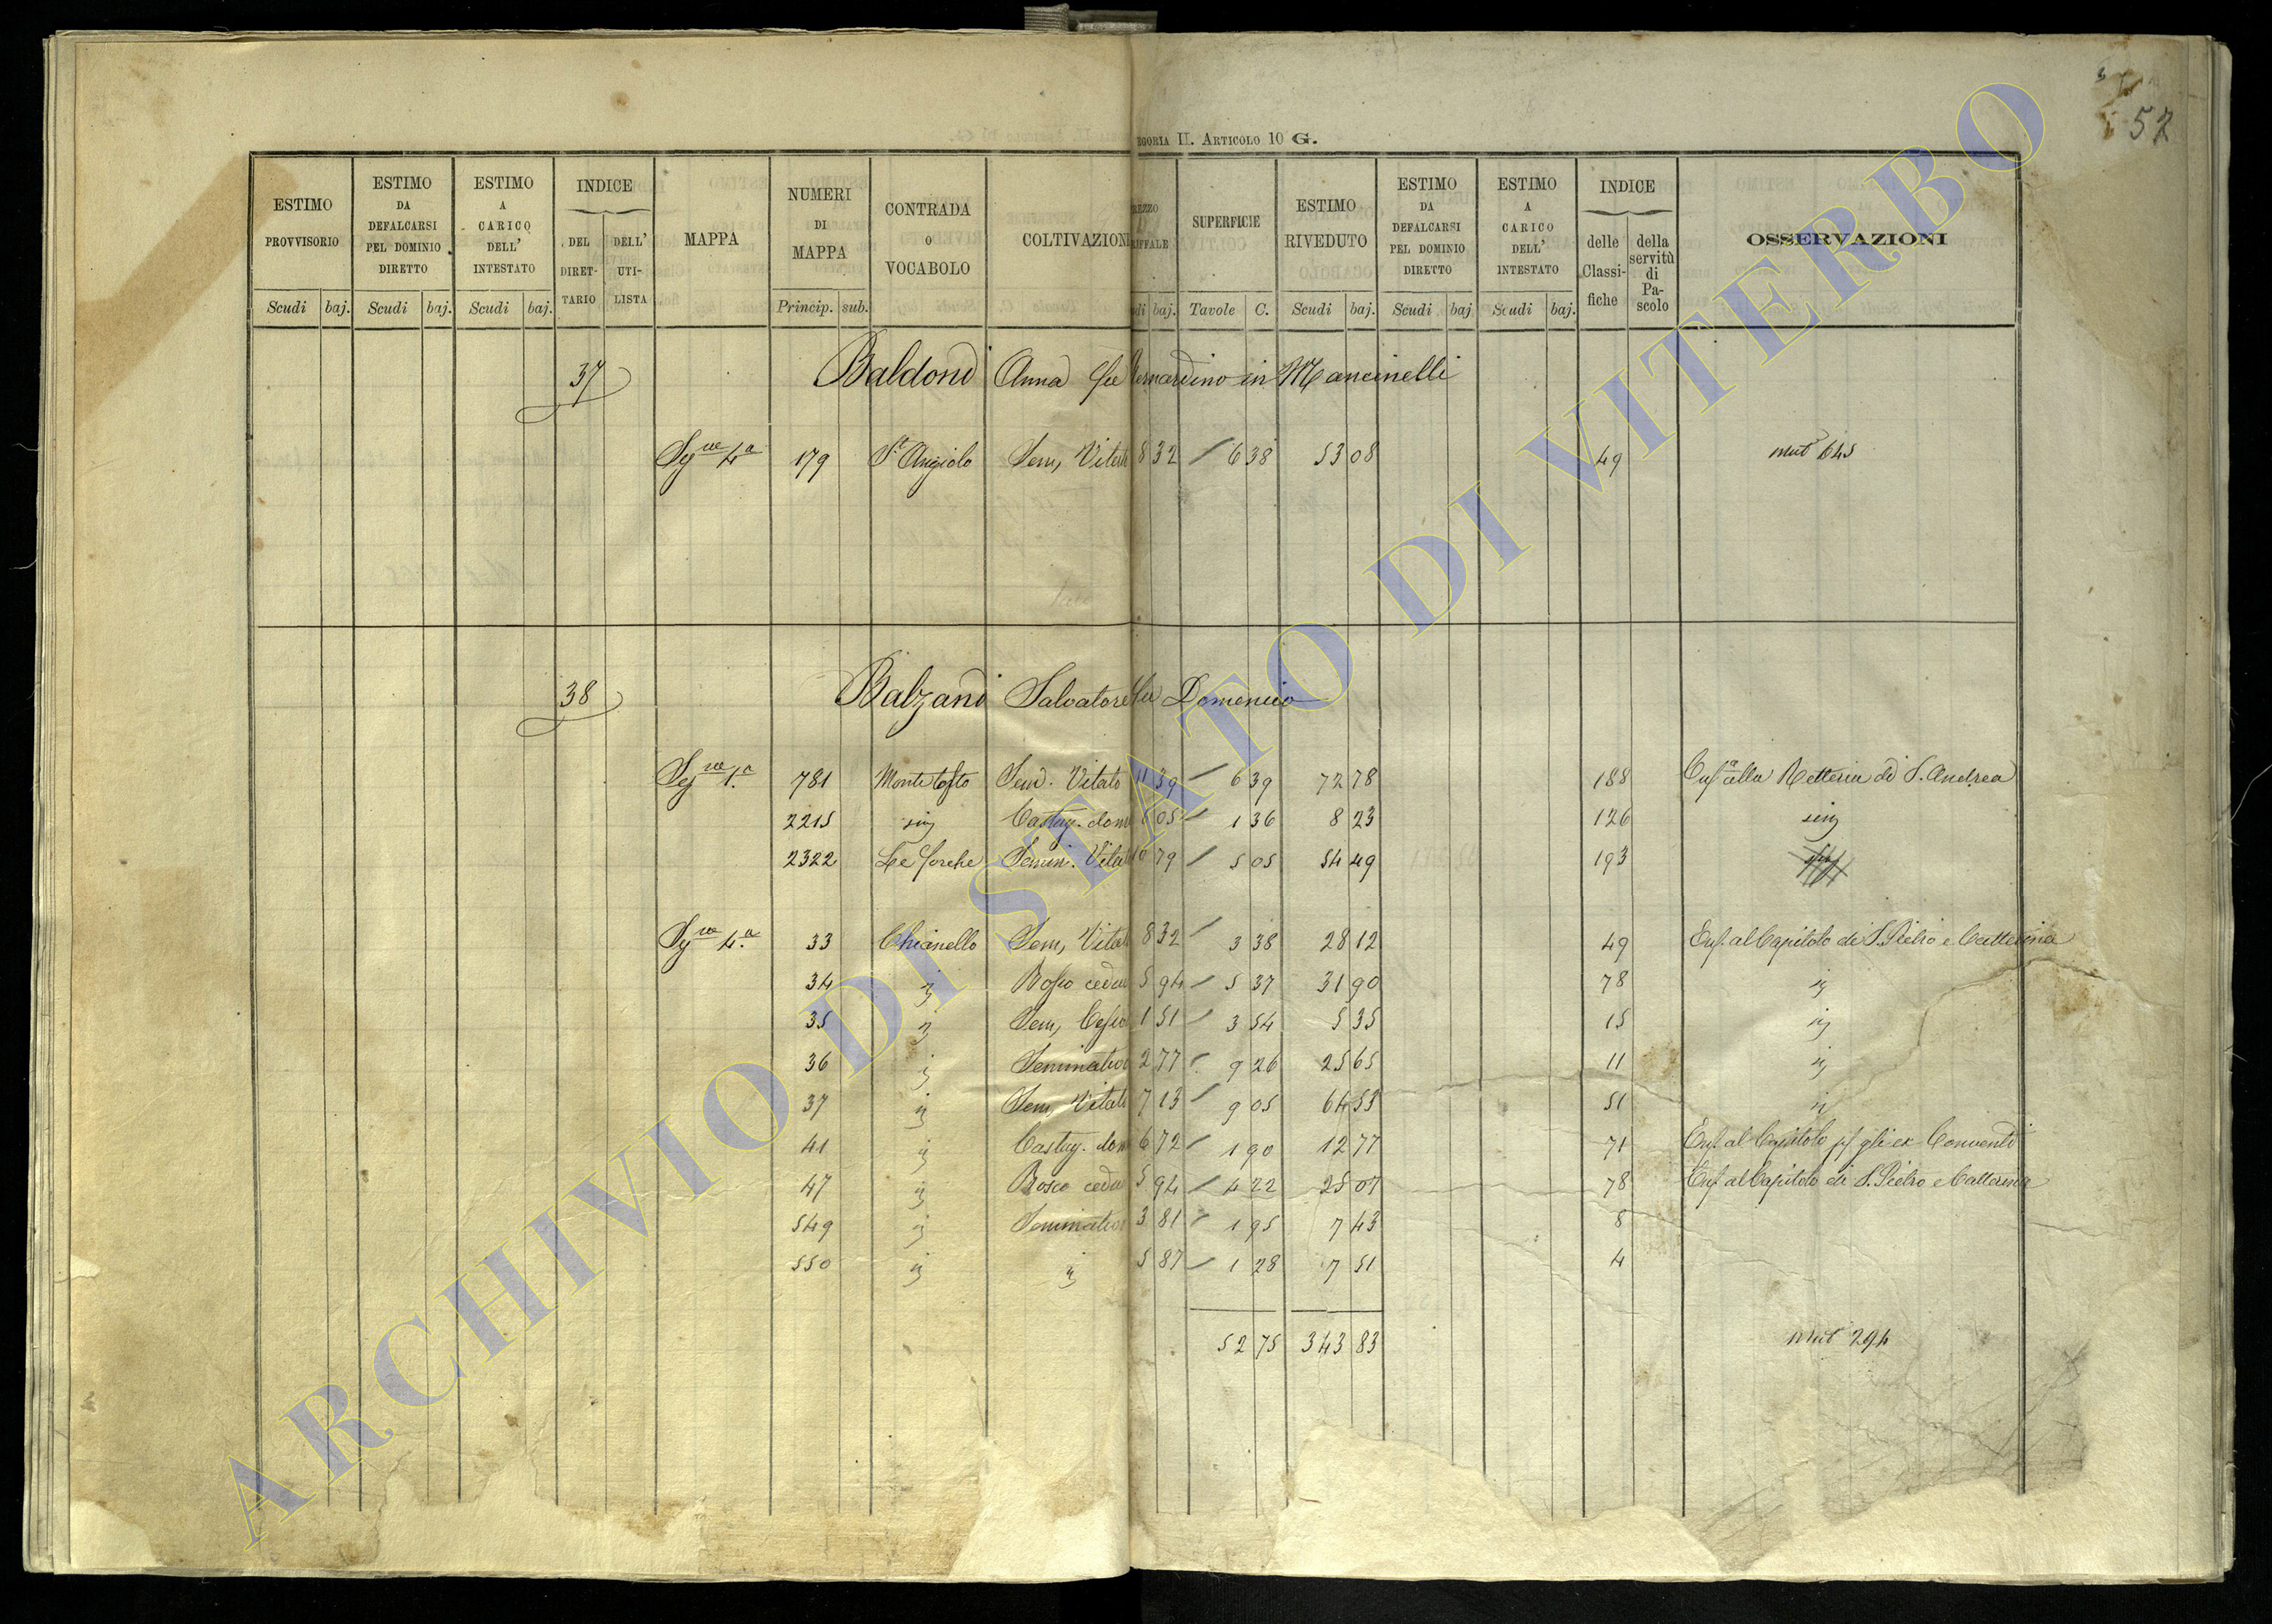 57
EGORIA II. ARTICOLO 10 G.
ESTIMO PROVVISORIO Scudi baj.
ESTIMO DA DEFALCARSI PEL DOMINIO DIRETTO Scudi baj.
ESTIMO A CARICO DELL' INTESTATO Scudi baj.
INDICE DEL DIRETTARIO DELL' UTILISTA
MAPPA
NUMERI DI MAPPA Princip. sub.
CONTRADA O VOCABOLO
COLTIVAZION
REZZO RIFFALE di baj.
SUPERFICIE Tavole C.
ESTIMO RIVEDUTO Scudi baj.
ESTIMO DA DEFALCARSI PEL DOMINIO DIRETTO Scudi baj
ESTIMO A CARICO DELL' INTESTATO Scudi baj.
INDICE delle Classifiche della servitù di Pascolo
OSSERVAZIONI
37 Baldoni Anna fu Bernardino in Mancinelli
Sez.ne 4a 179 St Angiolo Sem, Vitat 8 32 6 38 53 08 49 mut 645
38 Balzani Salvatore fu Domenico
Sez.ne 1.a 781 Monte testo Sem. Vitato 11 39 6 39 72 78 188 Enfa alla Retteria di S. Andrea
2215 sig Castag. dom 6 05 1 36 8 23 126 sig
2322 Le forche Semin. Vitat 10 79 5 05 54 49 193
Sez.ne 4.a 33 Chianello Sem, Vitat 8 32 3 38 28 12 49 Enf. al Capitolo di S. Pietro e Catterina
34 Bosco cedu 5 94 5 37 31 90 78
35 Sem, Cespo 1 51 3 54 5 35 15
36 Seminativo 2 77 9 26 25 65 11
37 Sem, Vitat 7 13 9 05 64 53 51
41 Castag. dom 6 72 1 90 12 77 71 Enf. al Capitolo gli ex Conventi
47 Bosco cedu 5 94 4 22 25 07 78 Enf. al Capitolo di S. Pietro e Catterina
549 Seminativo 3 81 1 95 7 43 8
550 5 87 1 28 7 51 4
52 75 343 83 mut 294
ARCHIVIO DI STATO DI VITERBO